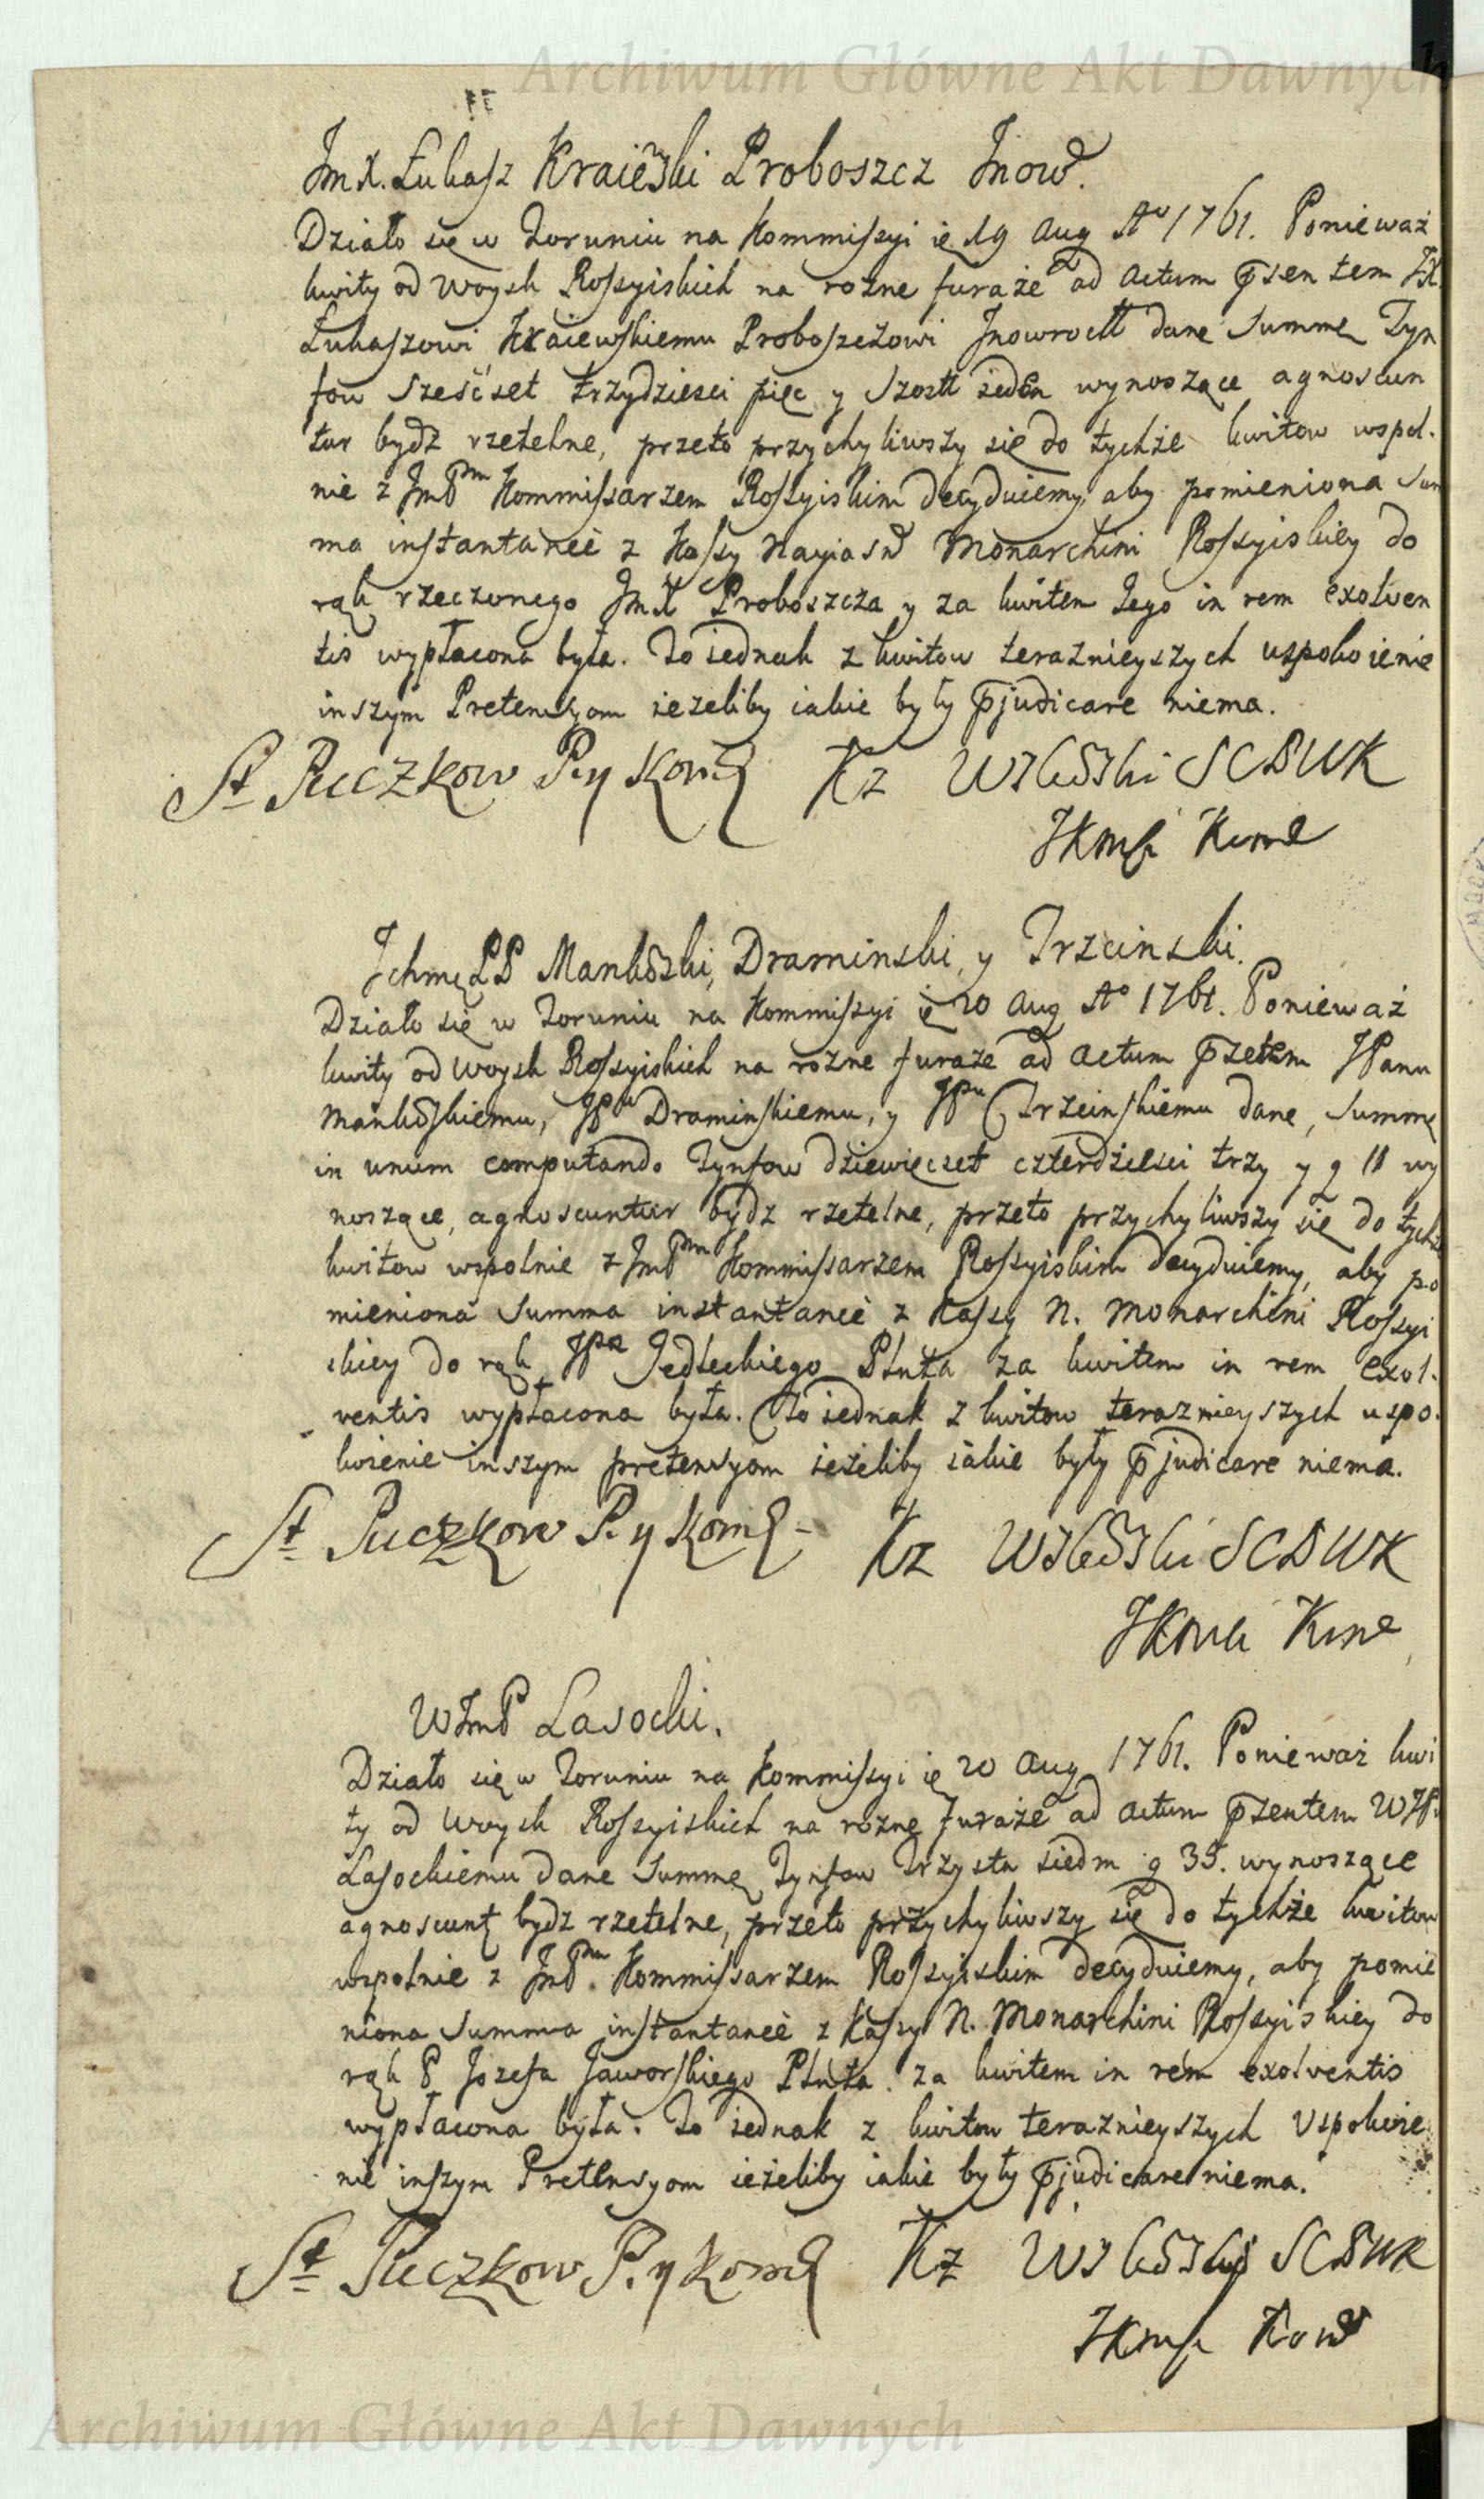 Archiwum Główne Akt Dawnych
JmX. Łukasz Kraiewski Proboszcz Jnow.
Działo się w Toruniu na Kommissyi ię 19 Aug Aº 1761. Ponieważ
kwity od woysk Rossyiskich na rożne furaże ad Actum psentem JX
Łukaszowi Kraiewskiemu Proboszczowi Jnowrocł dane Summę Tyn
fow sześćset trzydzieści pięc y szost ieden wynoszące agnoscun
tur bydz rzetelne, przeto przychyliwszy się do tychże kwitow wspol.
nie z JmPm Kommissarzem Rossyiskim decyduiemy, aby pomieniona Sum
ma instantanee z Kassy Nayiasn Monarchini Rossyiskiey do
rąk rzeczonego JmX Proboszcza y za kwitem Jego in rem exolven
tis wypłacona była. To iednak z kwitow teraznieyszych uspokoienie
inszym Pretensyom ieżeliby iakie były pjudicare niema.
St Puczkow P. y Kom Kz SCBWK
Jchmę PP Mańkowski, Dramiński, y Trzcinski.
Działo się w Toruniu na Kommissyi ię 20 Aug Aº 1761. Ponieważ
kwity od woysk Rossyiskich na rożne furaże ad Actum pzetem JPanu
Mańkowskiemu, JPu Dramińskiemu, y JPu Trzcinskiemu dane, Summę
in unum computando Tynfow dziewięćset czterdzieści trzy y g 11 wy
noszące, agnoscuntur bydz rzetelne, przeto przychyliwszy się do tychż
kwitow wspolnie z JmPm Kommissarzem Rossyiskim decyduiemy, aby po
mieniona Summa instantanee z Kassy N. Monarchini Rossyi
skiey do rąk JPa Jedleckiego Plnta za kwitem in rem exol.
ventis wypłacona była. To iednak z kwitow teraznieyszych uspo.
koienie inszym pretensyom ieżeliby iakie były pjudicare niema.
St Puczkow P. y Kom Kz SCBWK
WJmP Lasocki.
Działo się w Toruniu na Kommissyi ię 20 Aug 1761. Ponieważ kwi
ty od woysk Rossyiskich na rożne furaże ad Actum pzentem WJPu
Lasockiemu dane Summę Tynfow Trzysta siedm g 35. wynoszące
agnoscunt bydz rzetelne, przeto przychyliwszy się do tychże kwitow
wspolnie z JmPm. Kommissarzem Rossyiskim decyduiemy, aby pomie
niona Summa instantanee z Kassy N. Monarchini Rossyiskiey do
rąk P Jozefa Jaworskiego Plnta. za kwitem in rem exolventis
wypłacona była. To iednak z kwitow teraznieyszych Uspokoie
nie inszym Pretensyom ieżeliby iakie były pjudicare niema.
St Puczkow P. y Kom Kz SCBWK
Archiwum Główne Akt Dawnych